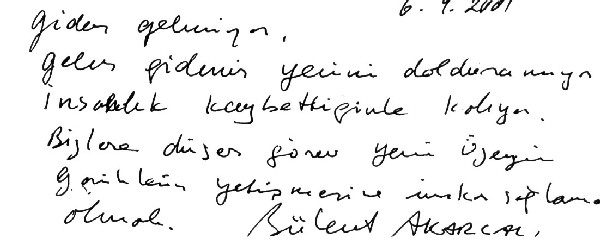 6.9.2001
Giden gelmiyor,
gelen gidenin yerini dolduramıyor
İnsanlık kaybettiğinle kalıyor.
Bizlere düşen görev yeni Üzeyir
Garihlerin yetişmesine imkan sağlamak
olmalı. Bülent AKARCALI